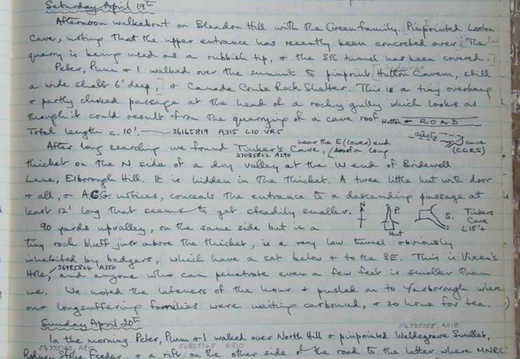 Saturday April 19th
Afternoon walkabout on Bleadon Hill with the Green family. Pinpointed Loxton
Cave, noting that the upper entrance has recently been concreted over. The
quarry is being used as a rubbish tip, & the SE tunnel has been covered.
Peter, Puna & I walked over the summit to pinpoint Hutton Cavern, still
a wide shaft 6' deep, & Canada Combe Rock Shelter. This is a tiny overhang
& partly choked passage at the head of a rocky gully which looks as
though it could result from the quarrying of a cave roof Hutton ROAD
Total length c. 10'. 36165819 A315 L10 VR5 cave (CCRS)
near the E (lower) end
After long searching we found Tinker's Cave, of a long
37085862 A390
thicket on the N side of a dry valley at the W end of Bridewell
Lane, Elborough Hill. It is hidden in the thicket. A twee little hut with door
& all, & ACG notices, conceals the entrance to a descending passage at
least 12' long that seems to get steadily smaller. P. S. Tinkers Cave L15'+
hut
90 yards upvalley, on the same side but in a
tiny rock bluff just above the thicket, is a very low tunnel obviously
inhabited by badgers, which have a set below & to the SE. This is Vixen's
Hole, and anyone who can penetrate even a few feet is smaller than
36985824 A350
me. We noted the lateness of the hour & pushed on to Yarborough where
our longsuffering families were waiting carbound, & so home for tea.
Sunday April 20th
In the morning Peter, Puna & I walked over North Hill & pinpointed Waldegrave Swallet,
Feeder, & a rift on the other side of the road to the latter where MNRC